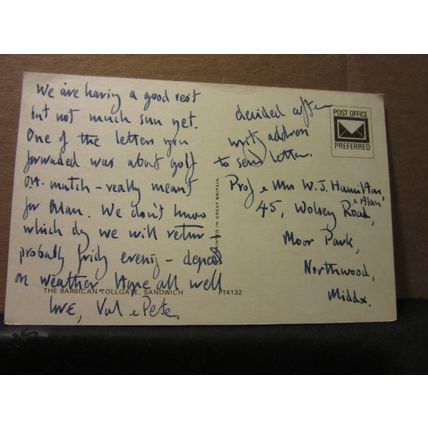 We are having a good rest
but not much sun yet.
One of the letters you
forwarded was about golf
match - really meant
for Alan. We don't know
which day we will return -
probably friday evening - depends
on weather. Hope all well
Love, Val & Pete.
THE BARBICAN TOLLGATE, SANDWICH PT4132
PRINTED IN GREAT BRITAIN
decided after
writing address
to send letter.
POST OFFICE
PREFERRED
Prof & Mrs W.J. Hamilton,
& Alan,
45, Wolsey Road,
Moor Park,
Northwood,
Middx.